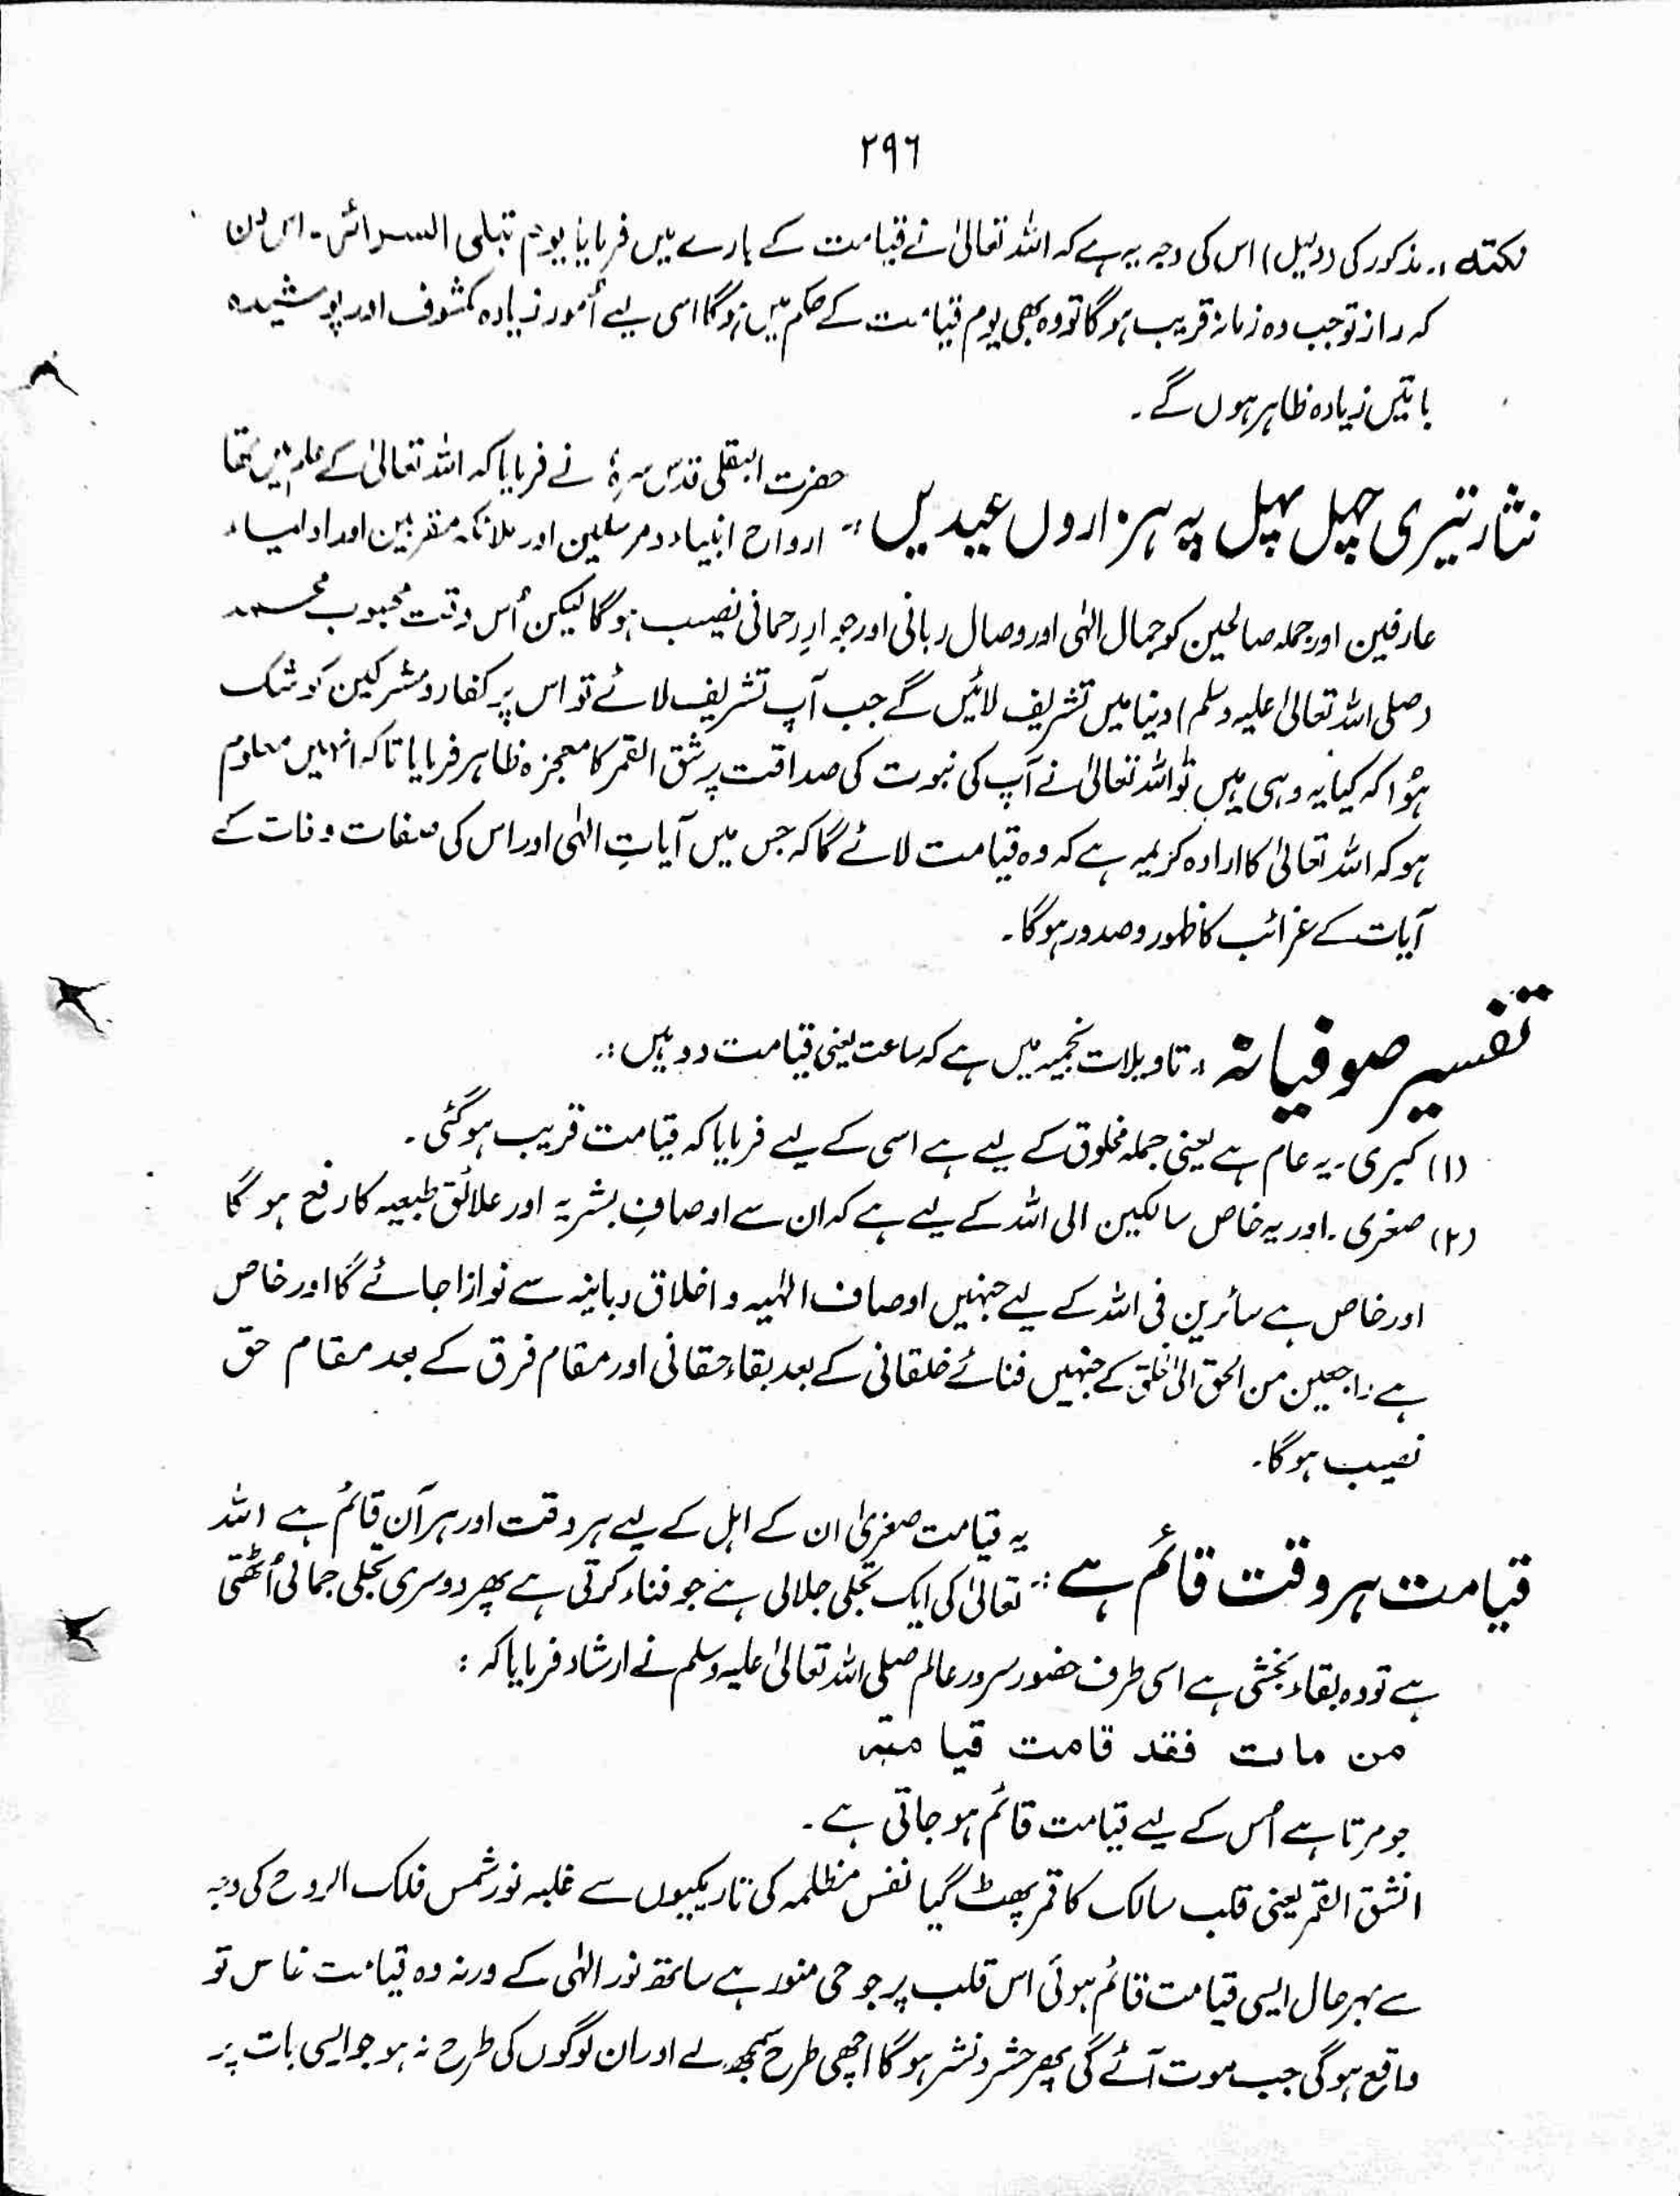 ۲۹۶
نکتہ :۔ مذکور کی (دلیل) اس کی وجہ یہ ہے کہ اللہ تعالیٰ نے قیامت کے بارے میں فرمایا یوم تبلی السرائر۔ اس دن
کہ راز تو جب وہ زمانہ قریب ہو گا تو وہ بھی یوم قیامت کے حکم میں ہوگا اسی لیے اُمور زیادہ کشوف اور پوشیدہ
باتیں زیادہ ظاہر ہوں گے۔
نثار تیری چہل پہل پہ ہزاروں عیدیں :۔ حضرت البقلی قدس سرہٗ نے فرمایا کہ اللہ تعالیٰ کے علم میں تھا
ارواح انبیاء و مرسلین اور ملائکہ مقربین اور اولیاء
عارفین اور جملہ صالحین کو جمال الٰہی اور وصال ربانی اور جوارِ رحمانی نصیب ہو گا لیکن اُس وقت محبوب محمد
(صلی اللہ تعالیٰ علیہ وسلم) دنیا میں تشریف لائیں گے جب آپ تشریف لائے تو اس پر کفار و مشرکین کو شک
ہُوا کہ کیا یہ وہی ہیں تو اللہ تعالیٰ نے آپ کی نبوت کی صداقت پر شق القمر کا معجزہ ظاہر فرمایا تاکہ انہیں معلوم
ہو کہ اللہ تعالیٰ کا ارادہ کریمہ ہے کہ وہ قیامت لائے گا کہ جس میں آیاتِ الٰہی اور اس کی صفات و ذات کے
آیات کے غرائب کا ظہور و صدور ہوگا۔
تفسیر صوفیانہ :۔ تاویلات نجمیہ میں ہے کہ ساعت یعنی قیامت دو ہیں :۔
(۱) کبری۔ یہ عام ہے یعنی جملہ مخلوق کے لیے ہے اسی کے لیے فرمایا کہ قیامت قریب ہوگئی۔
(۲) صغری۔ اور یہ خاص سالکین الی اللہ کے لیے ہے کہ ان سے اوصافِ بشریہ اور علائق طبعیہ کا رفع ہو گا
اور خاص ہے سائرین فی اللہ کے لیے جنہیں اوصاف الٰہیہ و اخلاق ربانیہ سے نوازا جائے گا اور خاص
ہے راجعین من الحق الی الخلق کے جنہیں فنائے خلقانی کے بعد بقاء حقانی اور مقام فرق کے بعد مقام حق
نصیب ہوگا۔
قیامت ہر وقت قائم ہے :۔ یہ قیامت صغریٰ ان کے اہل کے لیے ہر وقت اور ہر آن قائم ہے اللہ
تعالیٰ کی ایک تجلی جلالی ہے جو فناء کرتی ہے پھر دوسری تجلی جمالی اُٹھتی
ہے تو وہ بقاء بخشی ہے اسی طرف حضور سرور عالم صلی اللہ تعالیٰ علیہ وسلم نے ارشاد فرمایا کہ :
من مات فقد قامت قیامتہ
جو مرتا ہے اُس کے لیے قیامت قائم ہو جاتی ہے۔
انشق القمر یعنی قلب سالک کا قمر پھٹ گیا نفس مظلمہ کی تاریکیوں سے غلبہ نور شمس فلک الروح کی وجہ
سے بہر حال ایسی قیامت قائم ہوئی اس قلب پر جو حی منور ہے ساتھ نور الٰہی کے ورنہ وہ قیامت خاص تو
واقع ہوگی جب موت آئے گی پھر حشر و نشر ہوگا اچھی طرح سمجھ لے اور ان لوگوں کی طرح نہ ہو جو ایسی بات پر